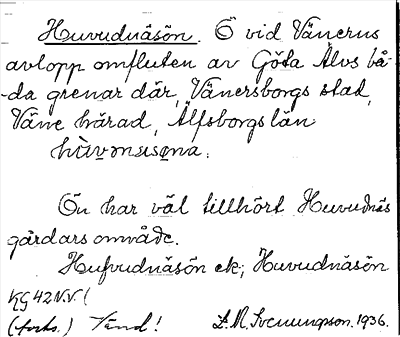 Huvudnäsön. Ö vid Vänerns
avlopp omfluten av Göta Älvs bå-
-da grenar där, Vänersborgs stad,
Väne härad, Älfsborgs län
Ön har väl tillhört Huvudnäs
gårdars område.
Hufvudnäsön ek; Huvudnäsön
KG 42 N.V. (
(forts.) Vänd! L.M. Svenungson. 1936.